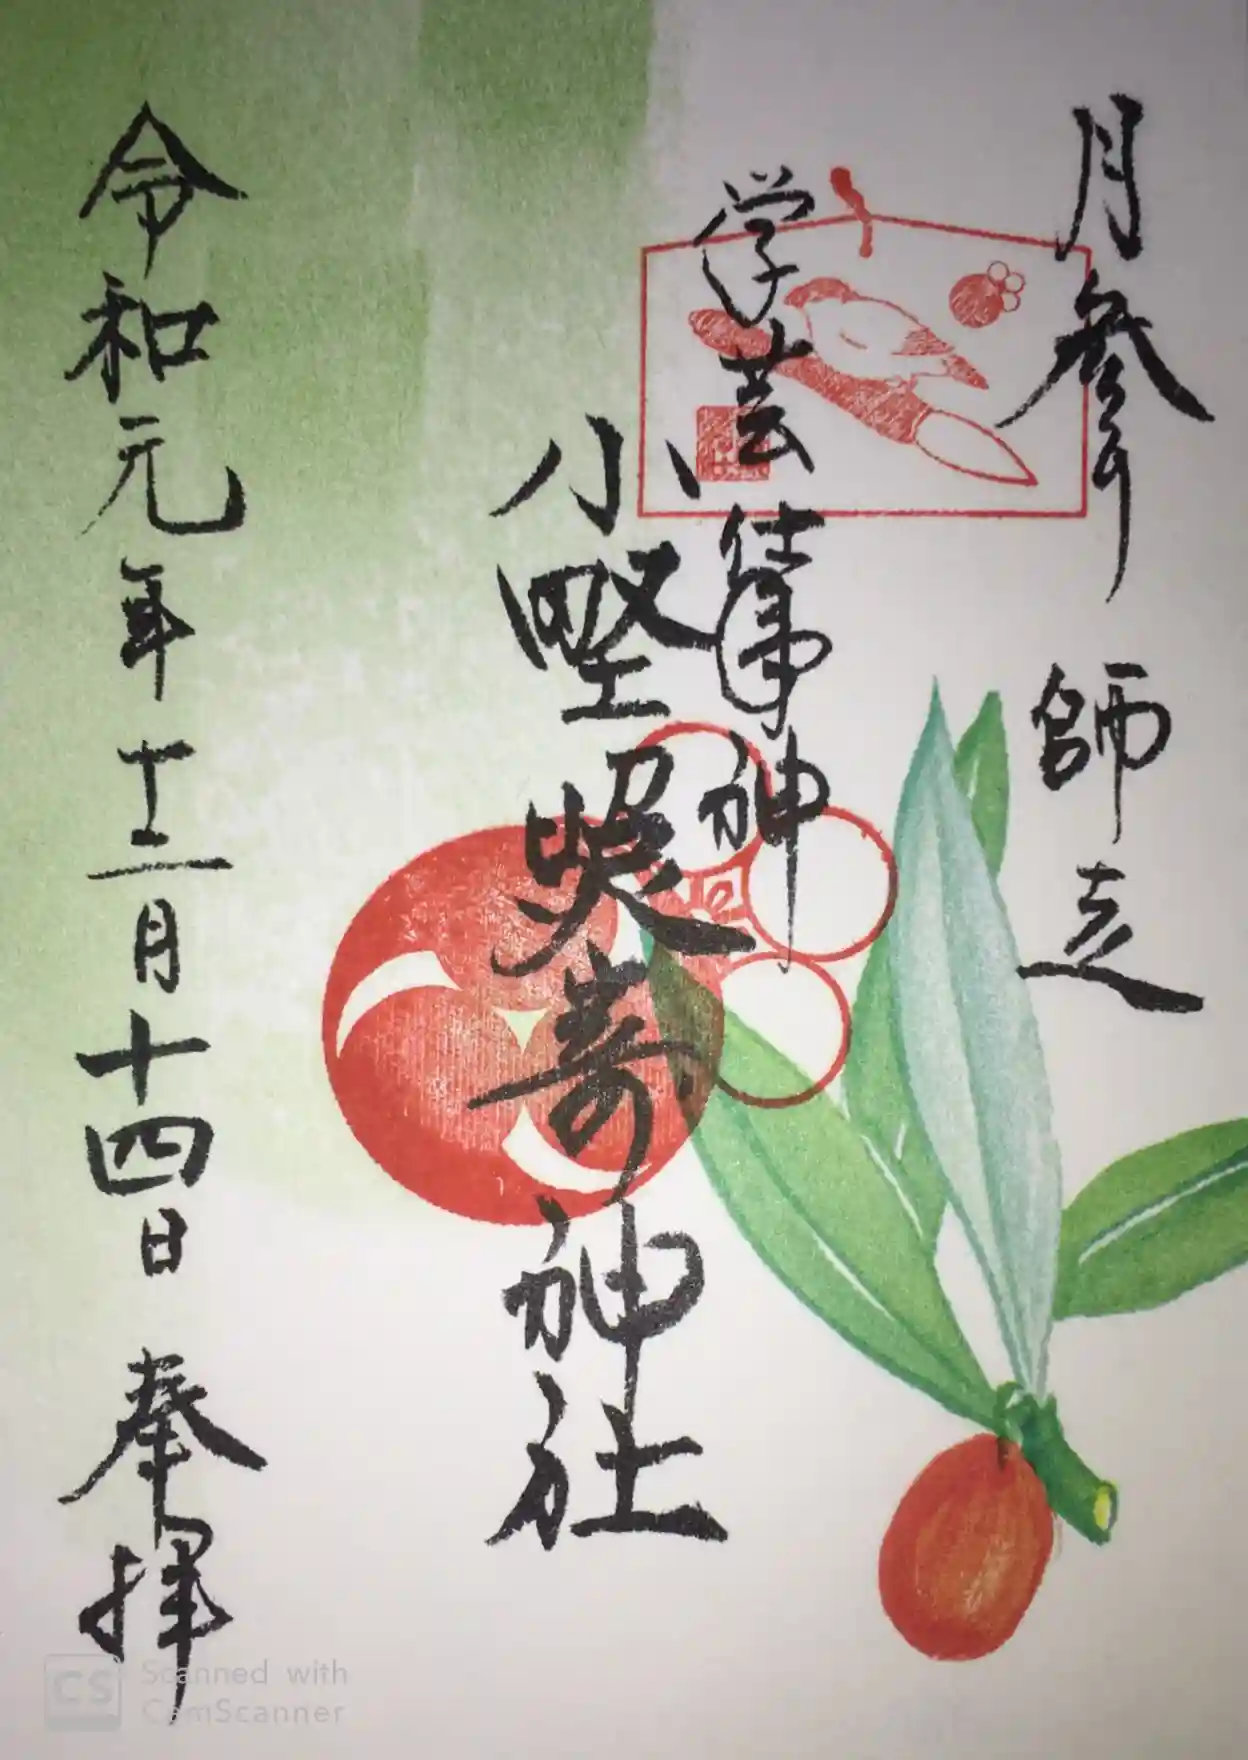 月参り 師走
学芸仕事神
小野照嵜神社
令和元年十二月十四日 奉拝
CS Scanned with
CamScanner